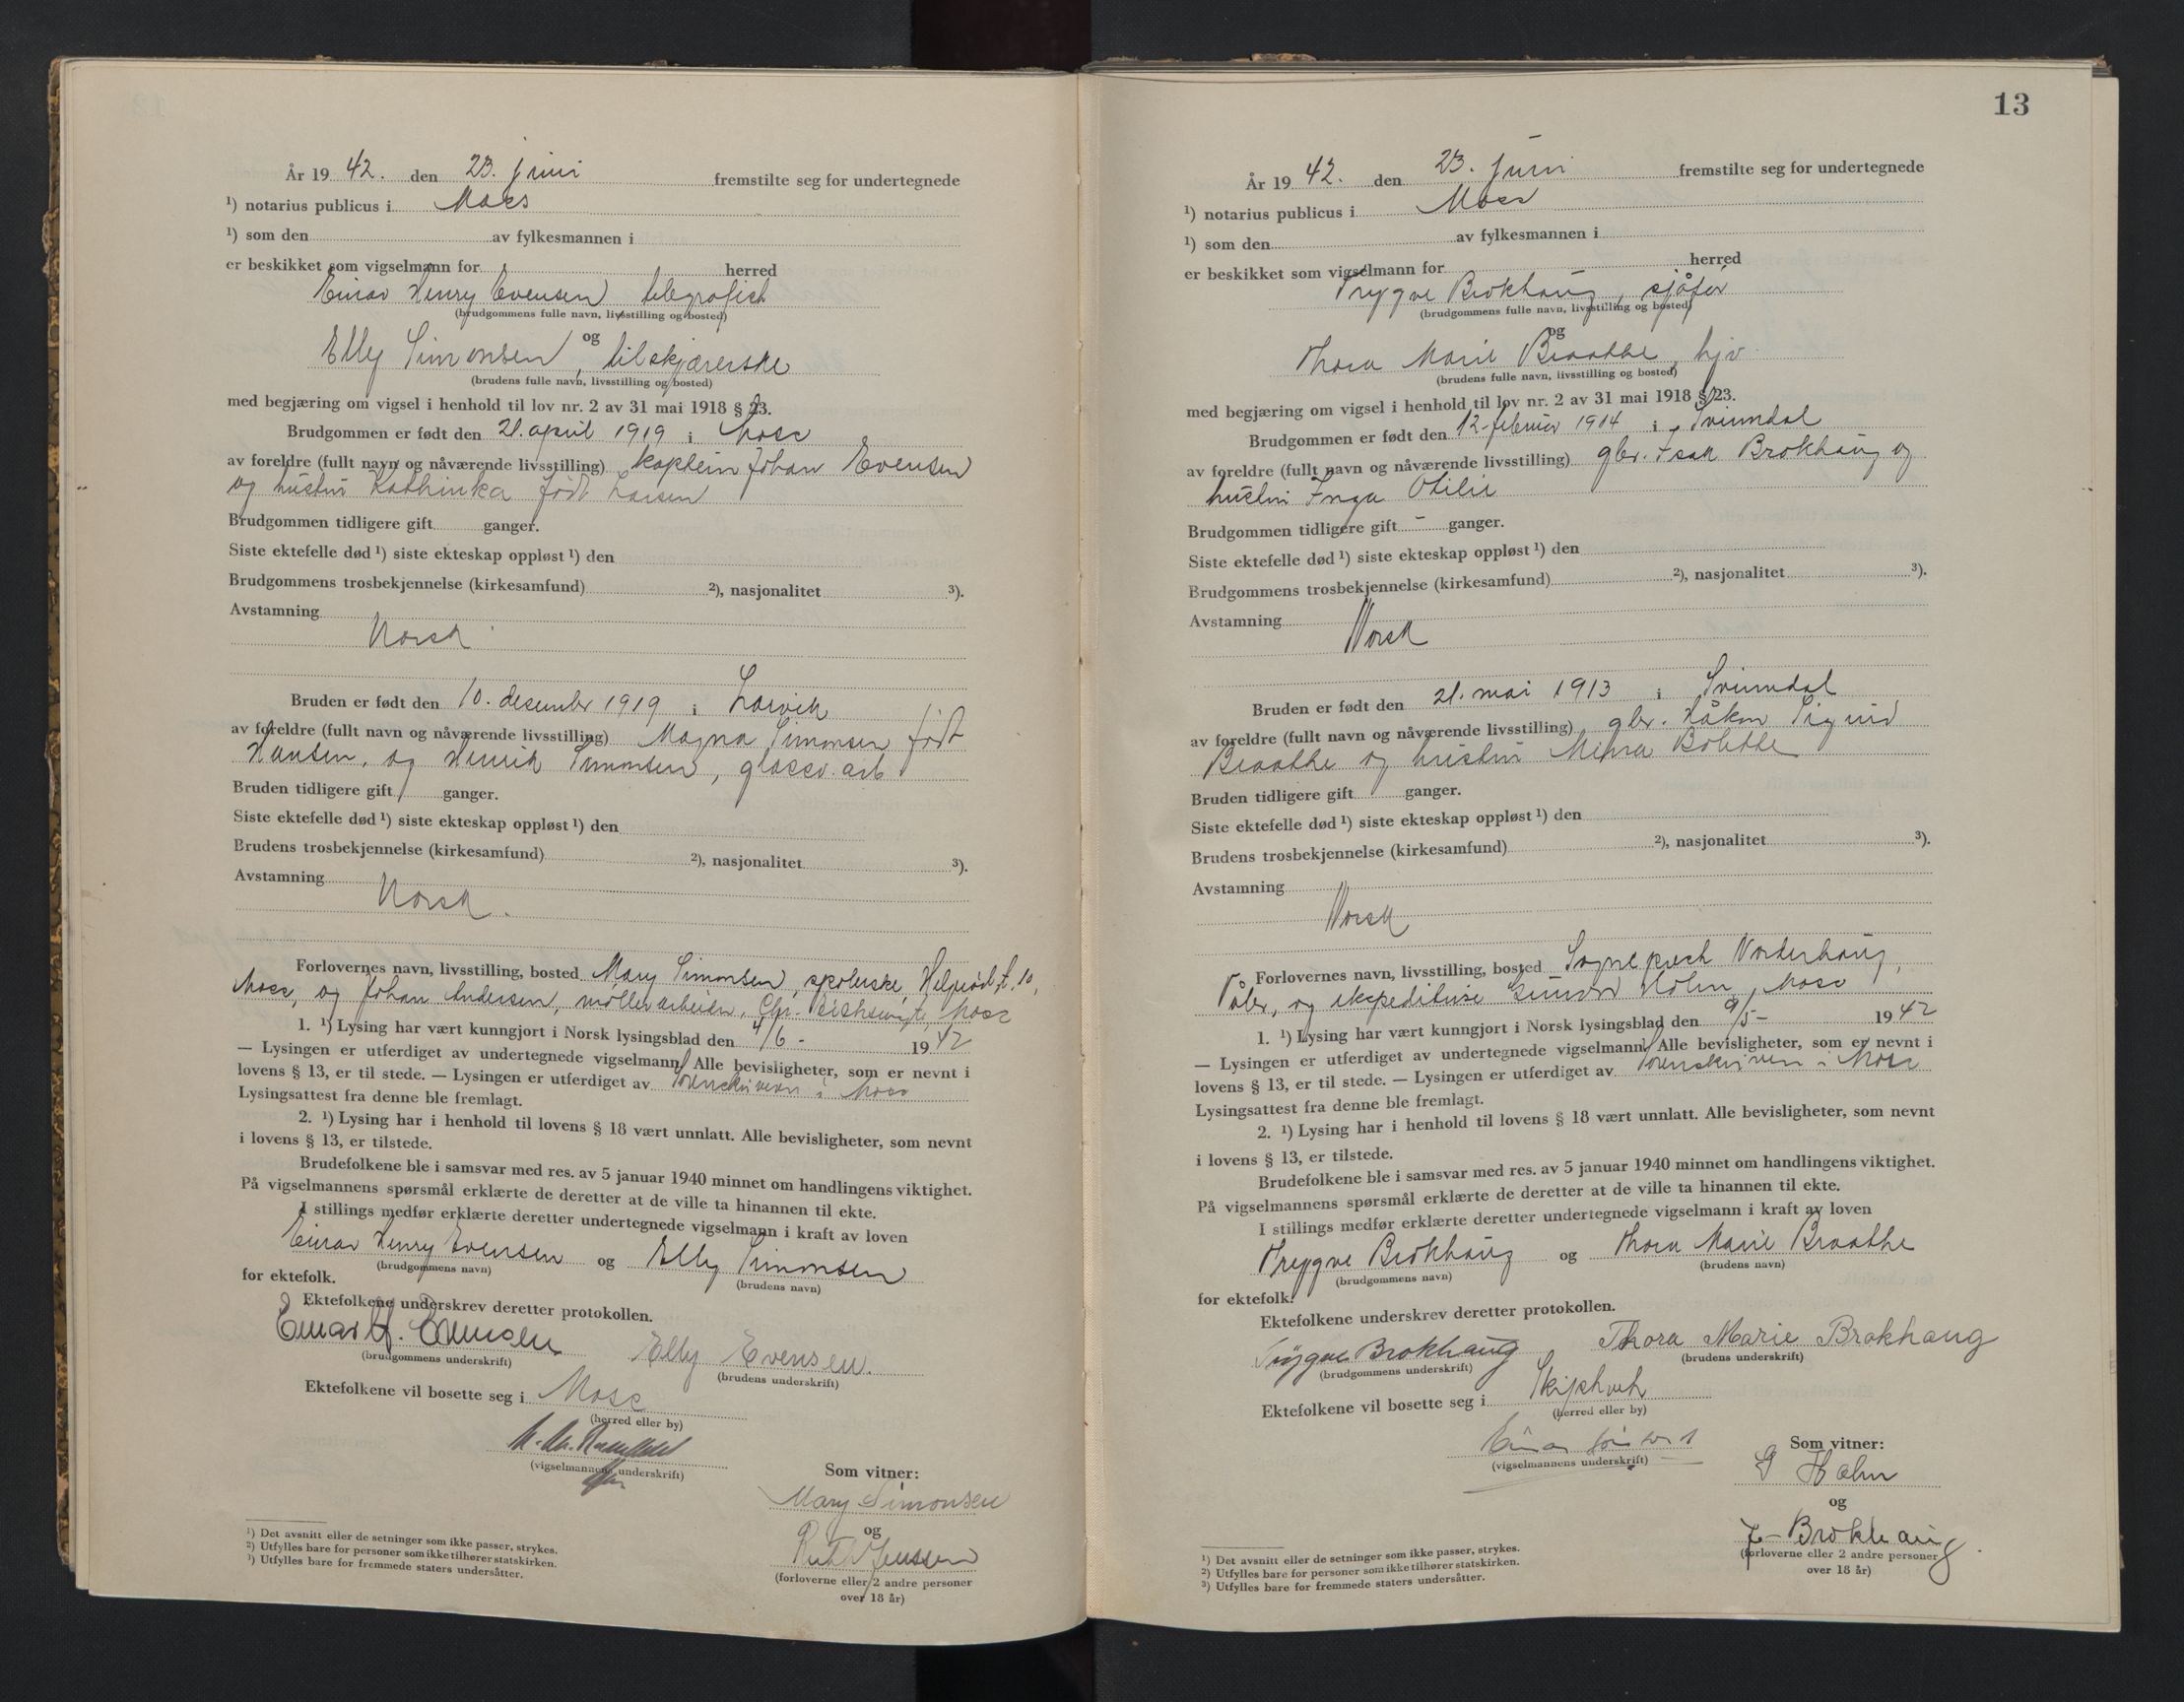 År 19 42. den 23. juni fremstilte seg for undertegnede
¹) notarius publicus i Moss
¹) som den av fylkesmannen i
er beskikket som vigselmann for herred
Einar Henry Evensen telegrafist
(brudgommens fulle navn, livsstilling og bosted)
og
Elly Simonsen, tilskjærerske
(brudens fulle navn, livsstilling og bosted)
med begjæring om vigsel i henhold til lov nr. 2 av 31 mai 1918 § 23.
Brudgommen er født den 21. april 1919 i Moss
av foreldre (fullt navn og nåværende livsstilling) kaptein Johan Evensen
og hustru Kathinka født Larsen
Brudgommen tidligere gift ganger.
Siste ektefelle død ¹) siste ekteskap oppløst ¹) den
Brudgommens trosbekjennelse (kirkesamfund) ²), nasjonalitet ³).
Avstamning
Norsk
Bruden er født den 10. desember 1919 i Larvik
av foreldre (fullt navn og nåværende livsstilling) Magna Simonsen født
Hansen, og Henrik Simonsen, glassv. arb
Bruden tidligere gift ganger.
Siste ektefelle død ¹) siste ekteskap oppløst ¹) den
Brudens trosbekjennelse (kirkesamfund) ²), nasjonalitet ³).
Avstamning
Norsk.
Forlovernes navn, livsstilling, bosted Mary Simonsen, 10,
Moss, og Johan Andersen, møllearbeider, Chr. Moss
1. ¹) Lysing har vært kunngjort i Norsk lysingsblad den 4/6 - 19 42
— Lysingen er utferdiget av undertegnede vigselmann. Alle bevisligheter, som er nevnt i
lovens § 13, er til stede. — Lysingen er utferdiget av sorenskriveren i Moss
Lysingsattest fra denne ble fremlagt.
2. ¹) Lysing har i henhold til lovens § 18 vært unnlatt. Alle bevisligheter, som nevnt
i lovens § 13, er tilstede.
Brudefolkene ble i samsvar med res. av 5 januar 1940 minnet om handlingens viktighet.
På vigselmannens spørsmål erklærte de deretter at de ville ta hinannen til ekte.
I stillings medfør erklærte deretter undertegnede vigselmann i kraft av loven
Einar Henry Evensen og Elly Simonsen
(brudgommens navn) (brudens navn)
for ektefolk.
Ektefolkene underskrev deretter protokollen.
Einar H. Evensen Elly Evensen.
(brudgommens underskrift) (brudens underskrift)
Ektefolkene vil bosette seg i Moss
(herred eller by)
(vigselmannens underskrift)
Som vitner:
Mary Simonsen
og
Ruth Jenssen
(forloverne eller 2 andre personer
over 18 år)
¹) Det avsnitt eller de setninger som ikke passer, strykes.
²) Utfylles bare for personer som ikke tilhører statskirken.
³) Utfylles bare for fremmede staters undersåtter.
13
År 19 42. den 23. juni fremstilte seg for undertegnede
¹) notarius publicus i Moss
¹) som den av fylkesmannen i
er beskikket som vigselmann for herred
Trygve Brokhaug, sjåfør
(brudgommens fulle navn, livsstilling og bosted)
og
Thora Marie Braathe, hjv.
(brudens fulle navn, livsstilling og bosted)
med begjæring om vigsel i henhold til lov nr. 2 av 31 mai 1918 § 23.
Brudgommen er født den 12. februar 1914 i Svinndal
av foreldre (fullt navn og nåværende livsstilling) gbr. Isak Brokhaug og
hustru Inga Otilie
Brudgommen tidligere gift - ganger.
Siste ektefelle død ¹) siste ekteskap oppløst ¹) den
Brudgommens trosbekjennelse (kirkesamfund) ²), nasjonalitet ³).
Avstamning
Norsk
Bruden er født den 21. mai 1913 i Svinndal
av foreldre (fullt navn og nåværende livsstilling) gbr. Håkon Sigurd
Braathe og hustru Minna Bolette
Bruden tidligere gift ganger.
Siste ektefelle død ¹) siste ekteskap oppløst ¹) den
Brudens trosbekjennelse (kirkesamfund) ²), nasjonalitet ³).
Avstamning
Norsk
Forlovernes navn, livsstilling, bosted Sogneprest Norderhaug,
Våler, og ekspeditrise Holm, Moss
1. ¹) Lysing har vært kunngjort i Norsk lysingsblad den 9/5 - 19 42
— Lysingen er utferdiget av undertegnede vigselmann. Alle bevisligheter, som er nevnt i
lovens § 13, er til stede. — Lysingen er utferdiget av sorenskriveren i Moss
Lysingsattest fra denne ble fremlagt.
2. ¹) Lysing har i henhold til lovens § 18 vært unnlatt. Alle bevisligheter, som nevnt
i lovens § 13, er tilstede.
Brudefolkene ble i samsvar med res. av 5 januar 1940 minnet om handlingens viktighet.
På vigselmannens spørsmål erklærte de deretter at de ville ta hinannen til ekte.
I stillings medfør erklærte deretter undertegnede vigselmann i kraft av loven
Trygve Brokhaug og Thora Marie Braathe
(brudgommens navn) (brudens navn)
for ektefolk.
Ektefolkene underskrev deretter protokollen.
Trygve Brokhaug Thora Marie Brokhaug
(brudgommens underskrift) (brudens underskrift)
Ektefolkene vil bosette seg i Skiptvet
(herred eller by)
(vigselmannens underskrift)
Som vitner:
G Holm
og
Brokhaug
(forloverne eller 2 andre personer
over 18 år)
¹) Det avsnitt eller de setninger som ikke passer, strykes.
²) Utfylles bare for personer som ikke tilhører statskirken.
³) Utfylles bare for fremmede staters undersåtter.